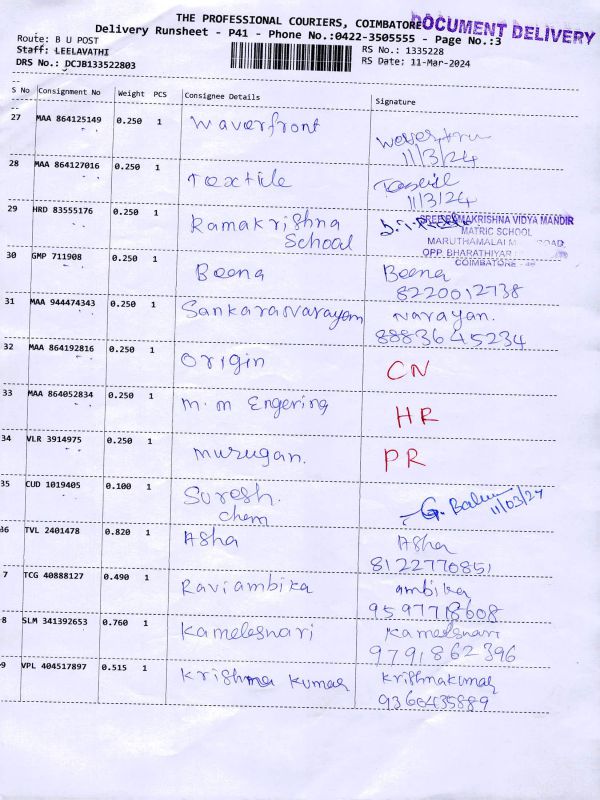 THE PROFESSIONAL COURIERS, COIMBATORE
DOCUMENT DELIVERY
Delivery Runsheet - P41 - Phone No.:0422-3505555 - Page No.:3
Route: B U POST
RS No.: 1335228
Staff: LEELAVATHI
RS Date: 11-Mar-2024
DRS No.: DCJB133522803
S No Consignment No Weight PCS Consignee Details Signature
27 MAA 864125149 0.250 1 Waverfront
11/3/24
28 MAA 864127016 0.250 1 Textile
11/3/24
29 HRD 83555176 0.250 1 Ramakrishna School
SREE RAMAKRISHNA VIDYA MANDIR
MATRIC SCHOOL
MARUTHAMALAI ROAD
OPP. BHARATHIYAR
COIMBATORE
30 GMP 711908 0.250 1 Beena Beena
8220012738
31 MAA 944474343 0.250 1 Sankaranarayam Narayan.
8883645234
32 MAA 864192816 0.250 1 Origin CN
33 MAA 864052834 0.250 1 M.M Engering HR
34 VLR 3914975 0.250 1 Murugan. PR
35 CUD 1019405 0.100 1 Suresh. chem G. Balu
11/03/24
36 TVL 2401478 0.820 1 Asha Asha
8122770851
7 TCG 40888127 0.490 1 Raviambika ambika
9597718608
8 SLM 341392653 0.760 1 Kamelesnari Kamelesnari
9791862396
9 VPL 404517897 0.515 1 Krishna Kumar Krishnakumar
9360435889